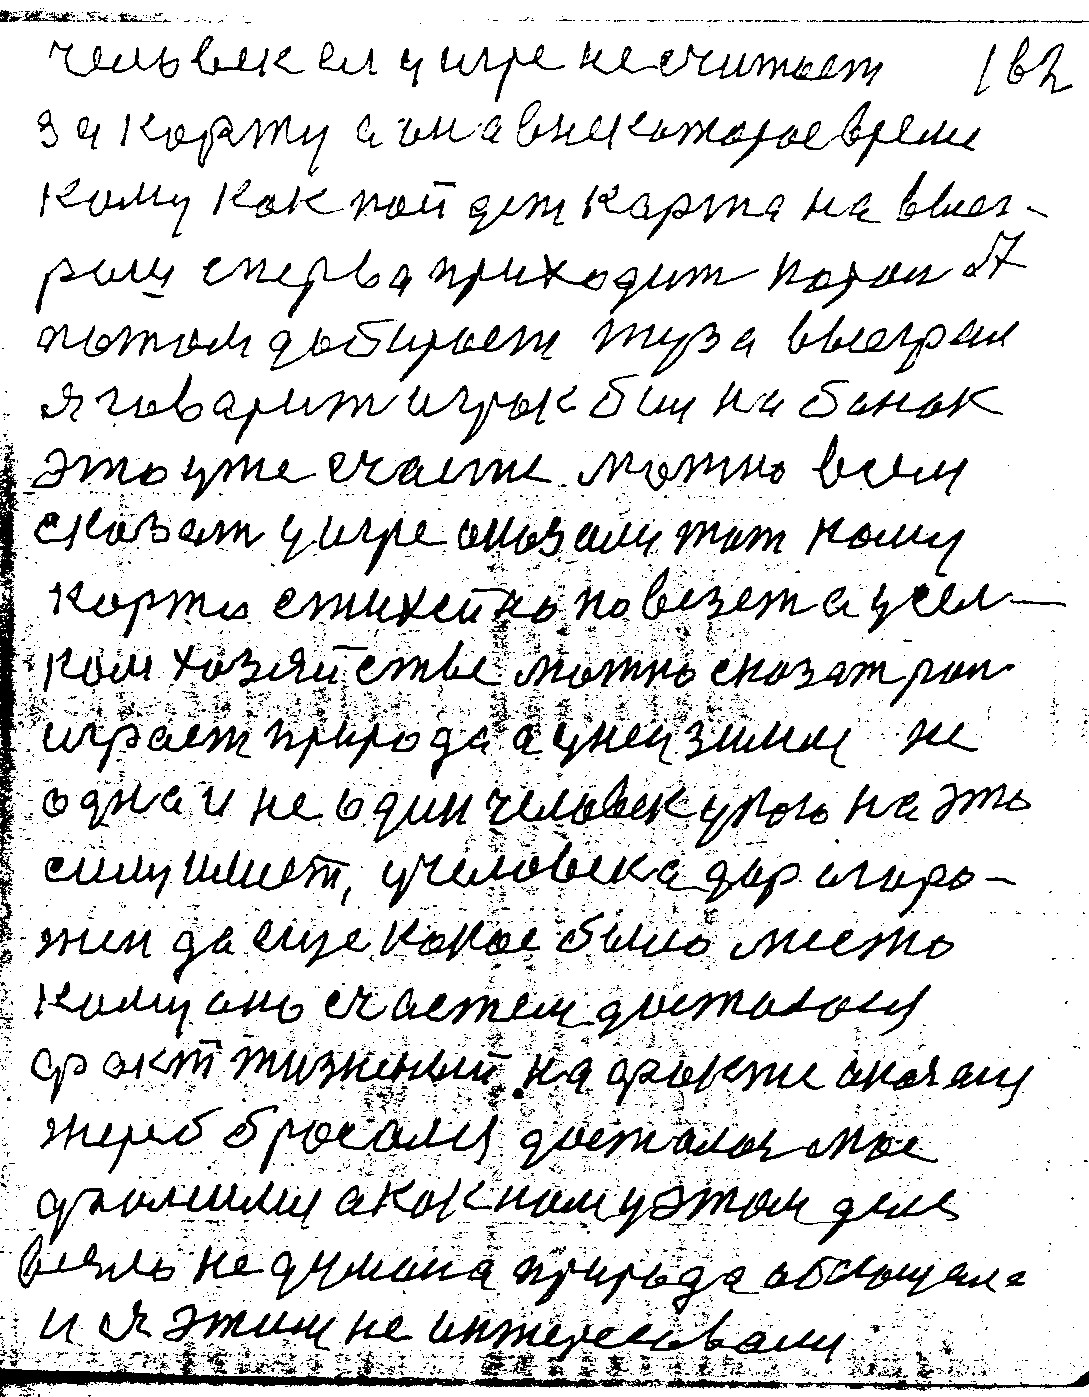 человек ел у игре не считает 162
за карту а она внекоторое время
кому как пойдет карта на выег-
рыш сперва приходит
потом добирает туза выеграл
я говарит игрок биш на банок
это уже счасте можно всем
сказат у игре оказали тот кому
карта стихейно повезет а у сел-
ком хозяйстве можно сказат рол
играет природа а у неи зимы не
одна и не один человек у кого на это
силу имеет, у человека дар
да еще какое было место
кому оно счастем досталося
факт жизненый на факте
жереб бросался досталос мое
фамилия а как нам у этом деле
везло не думала природа обсыщала
и я этим не интересовался